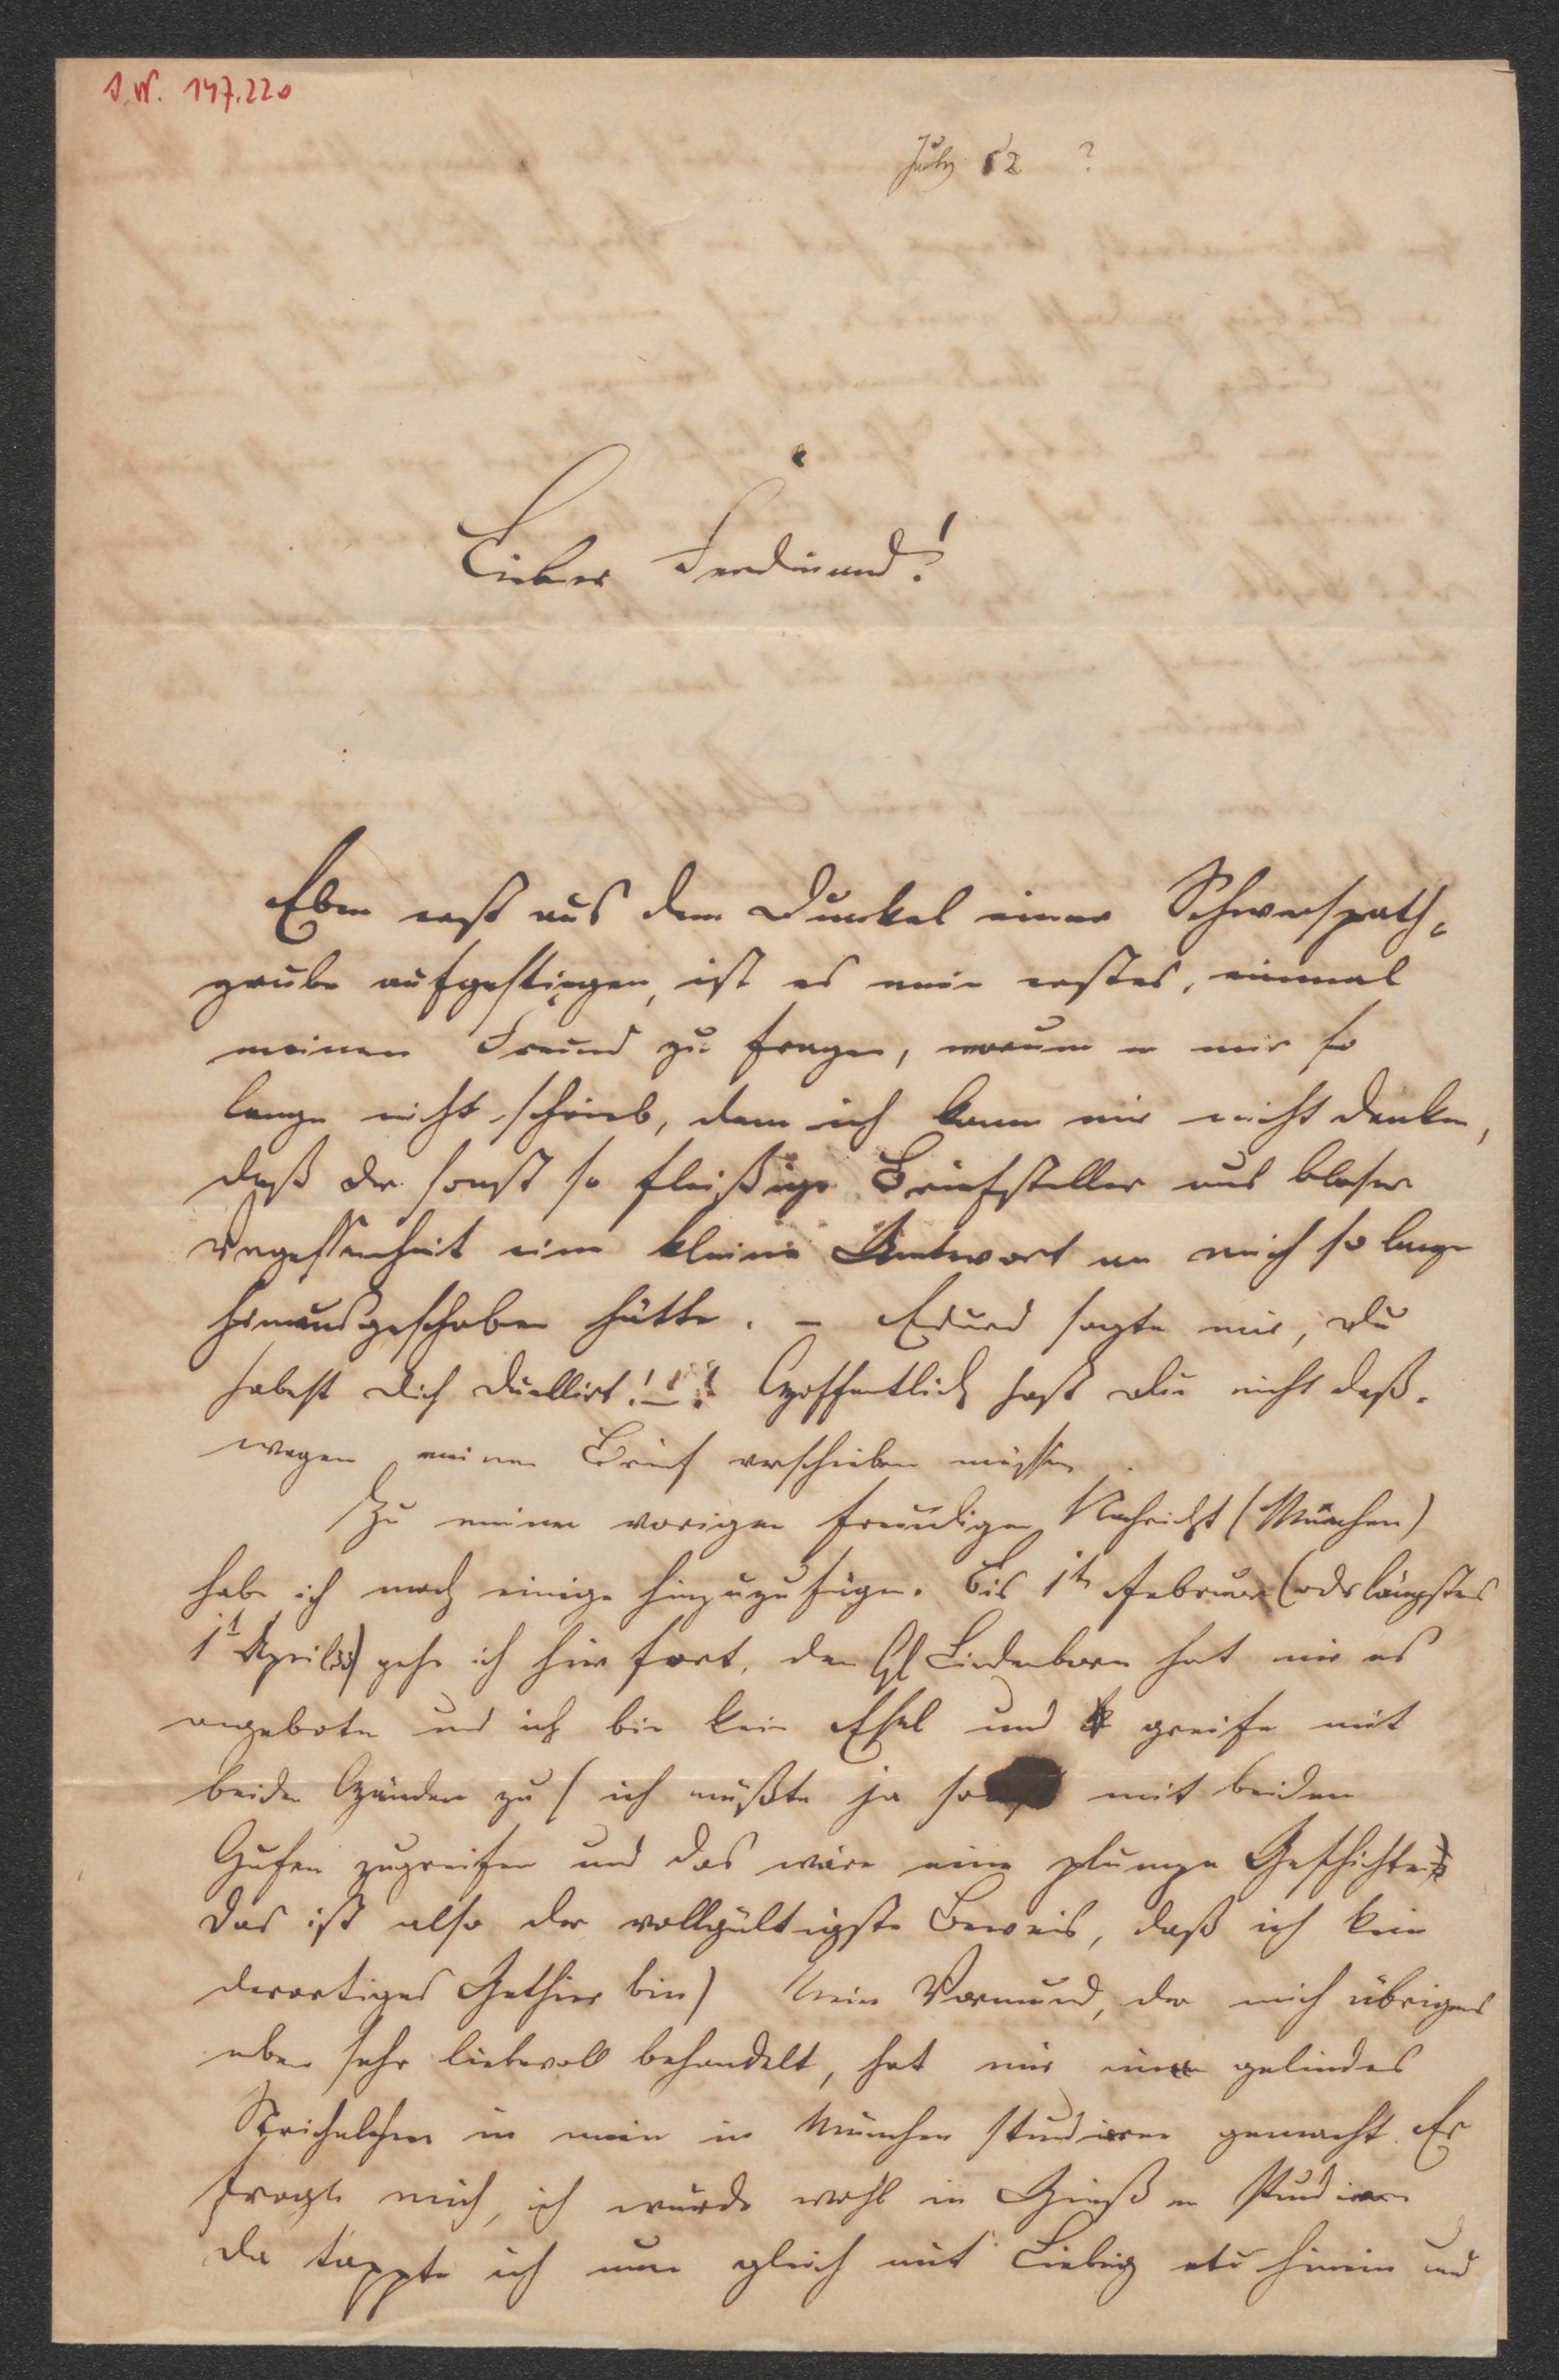 S. N. 147.220
July 52 ?
Lieber Ferdinand!
Eben erst aus dem Dunkel einer Schwerspath-
grube aufgestiegen, ist es mein erstes, einmal
meinen Freund zu fragen, warum er mir so
lange nicht schrieb, denn ich kann mir nicht denken,
daß der sonst so fleißige Briefsteller aus bloser
Vergessenheit eine kleine Antwort an mich so lange
hinausgeschoben hätte. – Eduard sagte mir, Du
habest Dich duellirt! – ! Hoffentlich hast Du nicht deß-
wegen meinen Brief verschieben müssen.
Zu meiner vorigen freudigen Nachricht (München)
habe ich noch einige hinzuzufügen. Bis 1t Februar (oder längstens
1t April 53) gehe ich hier fort, denn H Lindenborn hat mir es
angeboten und ich bin kein Esel und greife mit
beiden Händen zu (ich müßte ja sonst mit beiden
Hufen zugreifen und das wäre eine plumpe Geschichte
das ist also der vollgültigste Beweis, daß ich kein
derartiges Gethier bin) Mein Vormund, der mich übrigens
aber sehr liebevoll behandelt, hat mir ein gelindes
Strichelchen in mein in München studiren gemacht. Er
fragte mich, ich würde wohl in Gießen studiren
da tappte ich nun gleich mit Liebig etc hinein und